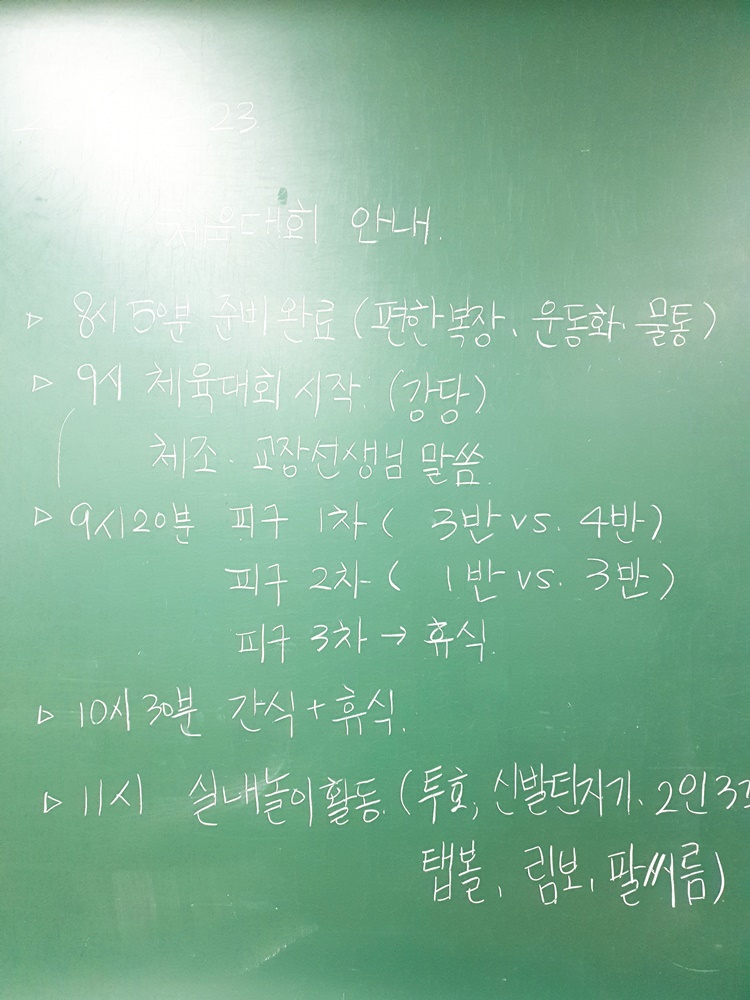 23
체육대회 안내.
▷ 8시 50분 준비완료 (편한복장, 운동화, 물통)
▷ 9시 체육대회 시작. (강당)
체조. 교장선생님 말씀.
▷ 9시20분 피구 1차 ( 3반 vs. 4반)
피구 2차 ( 1반 vs. 3반)
피구 3차 → 휴식.
▷ 10시 30분 간식 + 휴식.
▷ 11시 실내놀이활동. (투호, 신발던지기. 2인3
탭볼, 림보, 팔씨름)